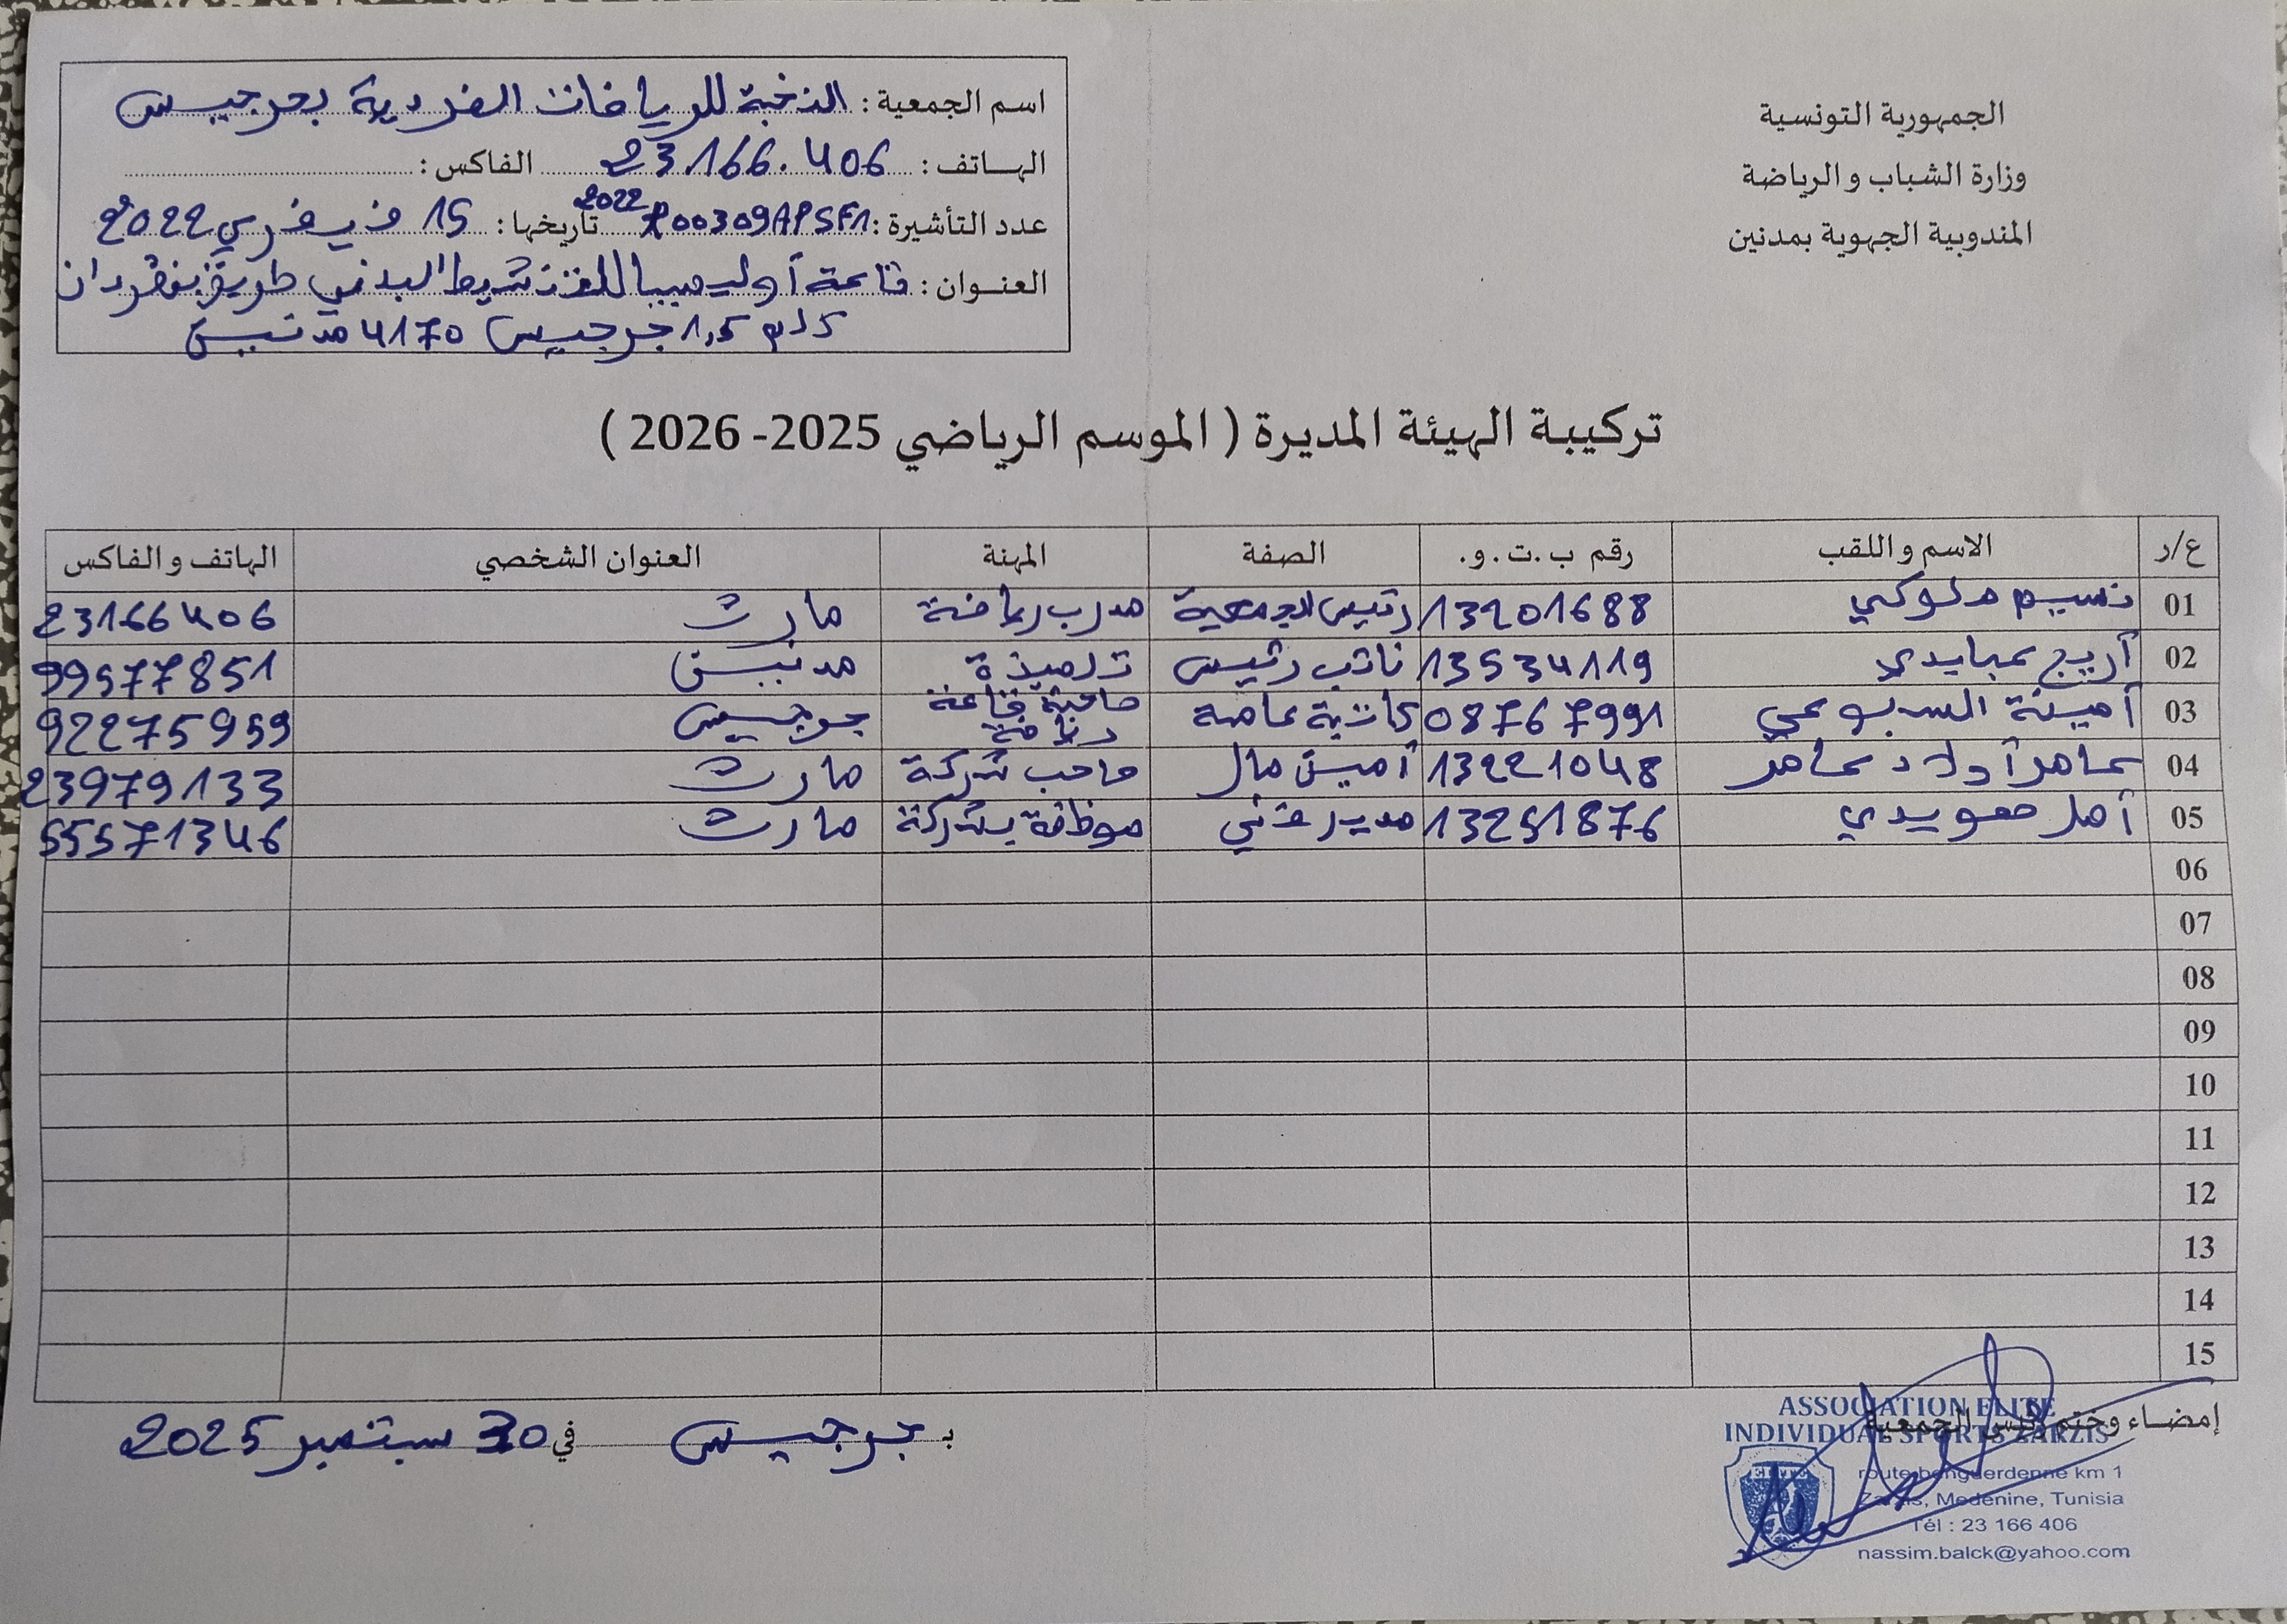 الجمهورية التونسية
وزارة الشباب و الرياضة
المندوبية الجهوية بمدنين
اسم الجمعية : النخبة للرياضات الفردية بجرجيس
الهاتف : 23.166.406 الفاكس :
عدد التأشيرة : 2022R00309APSF1 تاريخها : 15 فيفري 2022
العنوان : قاعة أوليمبيا للتنشيط البدني طريق بنقردان
كلم 1,5 جرجيس 4170 مدنين
تركيبة الهيئة المديرة ( الموسم الرياضي 2025- 2026 )
ع/ر الاسم و اللقب رقم ب.ت.و. الصفة المهنة العنوان الشخصي الهاتف و الفاكس
01 نسيم ملوكي 13201688 رئيس الجمعية مدرب رياضة مارث 23166406
02 أريج عبايدي 13534119 نائب رئيس تلميذة مدنين 99577851
03 أمينة السبوعي 08767991 كاتبة عامة صاحبة قاعة رياضة جرجيس 92275959
04 عامر أولاد عامر 13221048 أمين مال صاحب شركة مارث 23979133
05 أمل معويدي 13251876 مدير فني موظفة بشركة مارث 55571346
06
07
08
09
10
11
12
13
14
15
إمضاء وختم رئيس الجمعية
بـ جرجيس في 30 سبتمبر 2025
ASSOCIATION ELITE
INDIVIDUAL SPORTS ZARZIS
route benguerdenne km 1
Zarzis, Medenine, Tunisia
Tél : 23 166 406
nassim.balck@yahoo.com